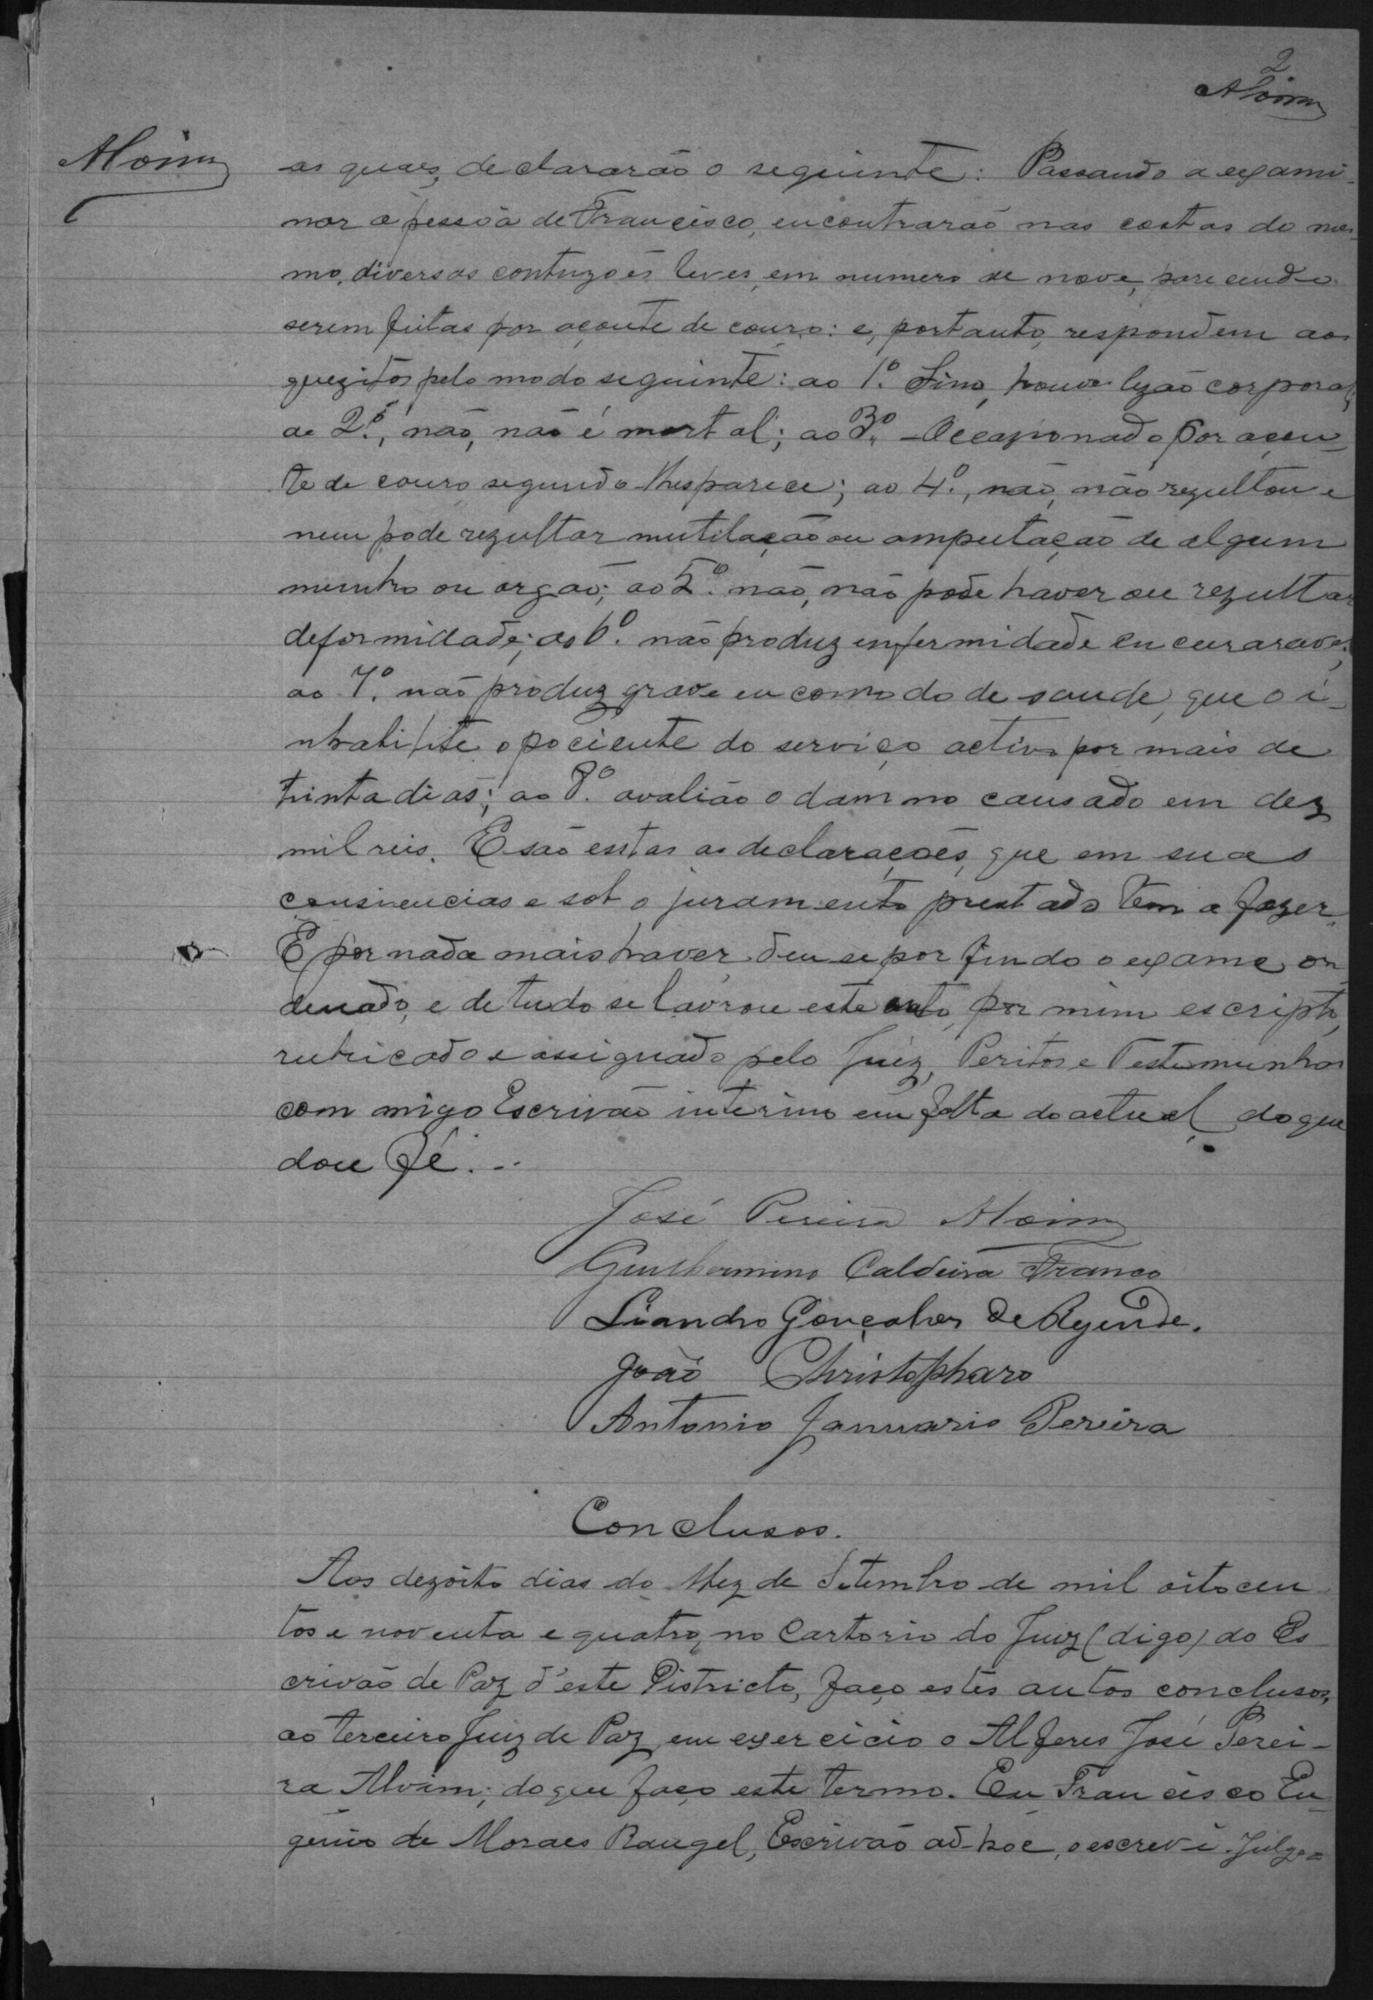 2
Alvim
Alvim
as quaes, declararão o seguinte: Passando a exami-
nar a pessôa de Francisco, encontrarão nas costas do mes-
mo, diversas contuzões leves, em numero de nove, parecendo
serem feitas por açoute de couro: e, portanto, respondem aos
quezitos pelo modo seguinte: ao 1º. Sim, houve lezão corporal;
ao 2º., não, não é mortal; ao 3º. - Occazionado por açou-
te de couro segundo lhes parece; ao 4º., não, não rezultou e
nem pode rezultar mutilação ou amputação de algum
membro ou orgão; ao 5º. não, não póde haver ou rezultar
deformidade; ao 6º. não produz enfermidade encuravel;
ao 7º. não produz grave encommodo de saude, que o i-
nhabilite o paciente do serviço activo por mais de
trinta dias; ao 8º. avalião o damno causado em dez
mil reis. E são estas as declarações, que em suas
consiencias e sob o juramento prestado tem a fazer.
E por nada mais haver, deu se por findo o exame or-
denado, e de tudo se lavrou este auto, por mim escripto,
rubricado e assignado pelo Juiz, Peritos e Testemunhas
com migo Escrivão interino em falta do actual, do que
dou fé...
José Pereira Alvim
Guilhermino Caldeira Franco
Liandro Gonçalves de Resende.
João Christopharo
Antonio Januario Pereira
Conclusos.
Aos dezóito dias do Mez de Setembro de mil oitocen-
tos e noventa e quatro, no Cartorio do Juiz (digo) do Es
crivão de Paz d'este Districto, faço estes autos conclusos,
ao terceiro Juiz de Paz, em exercicio o Alferes José Perei-
ra Alvim; do que faço este termo. Eu Francisco Eu-
gênio de Moraes Rangel, Escrivão ad-hoc, o escrevi. Julgo=